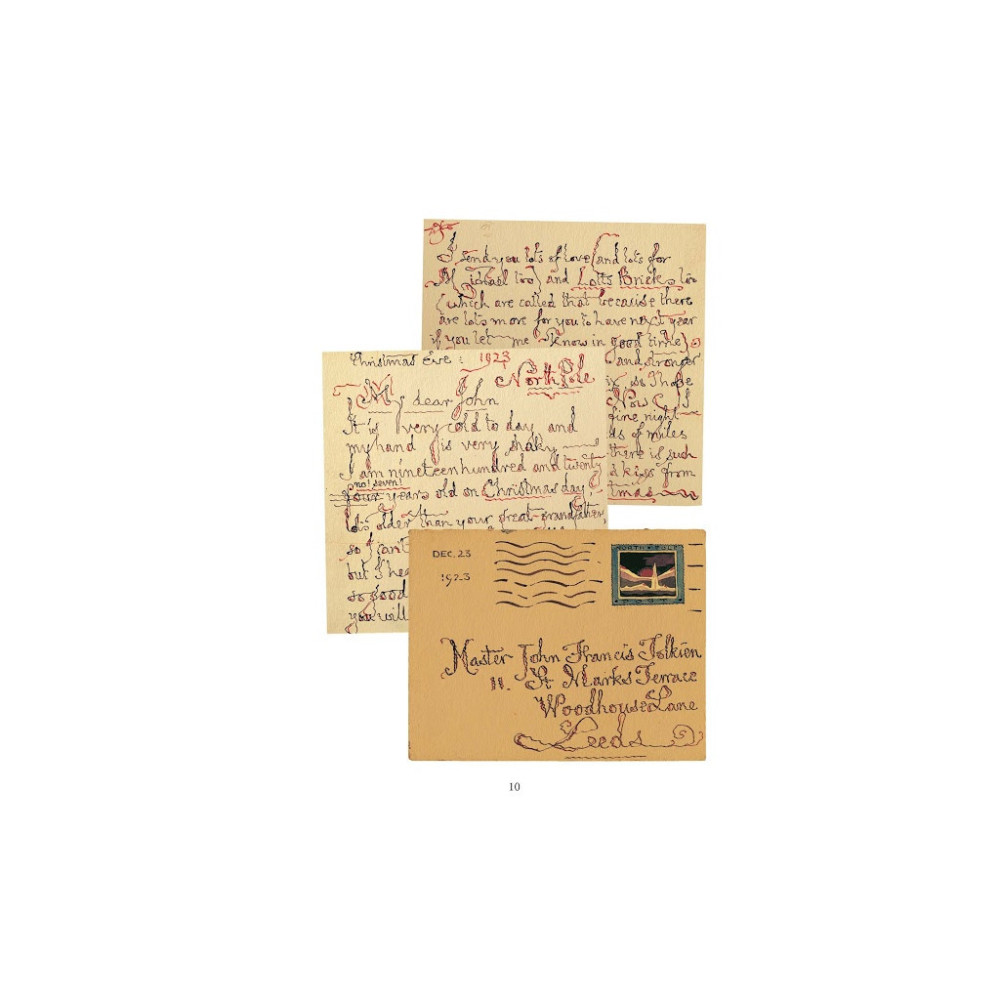 I send you lots of love (and lots for
Michael too) and Lotts Bricks too
(which are called that because there
are lots more for you to have next year
if you let me know in good time)
and stronger
as those
Now I
fine night
of miles
there is such
a kiss from
tmas
Christmas Eve : 1923
North Pole
My dear John
It is very cold to day and
my hand is very shaky
I am nineteen hundred and twenty
no! seven!
four years old on Christmas day,
lots older than your great-grandfather,
so I can't
but I hea
so good
you will
DEC. 23
1923
NORTH • POLE
Master John Francis Tolkien
11. St Marks Terrace
Woodhouse Lane
Leeds
10